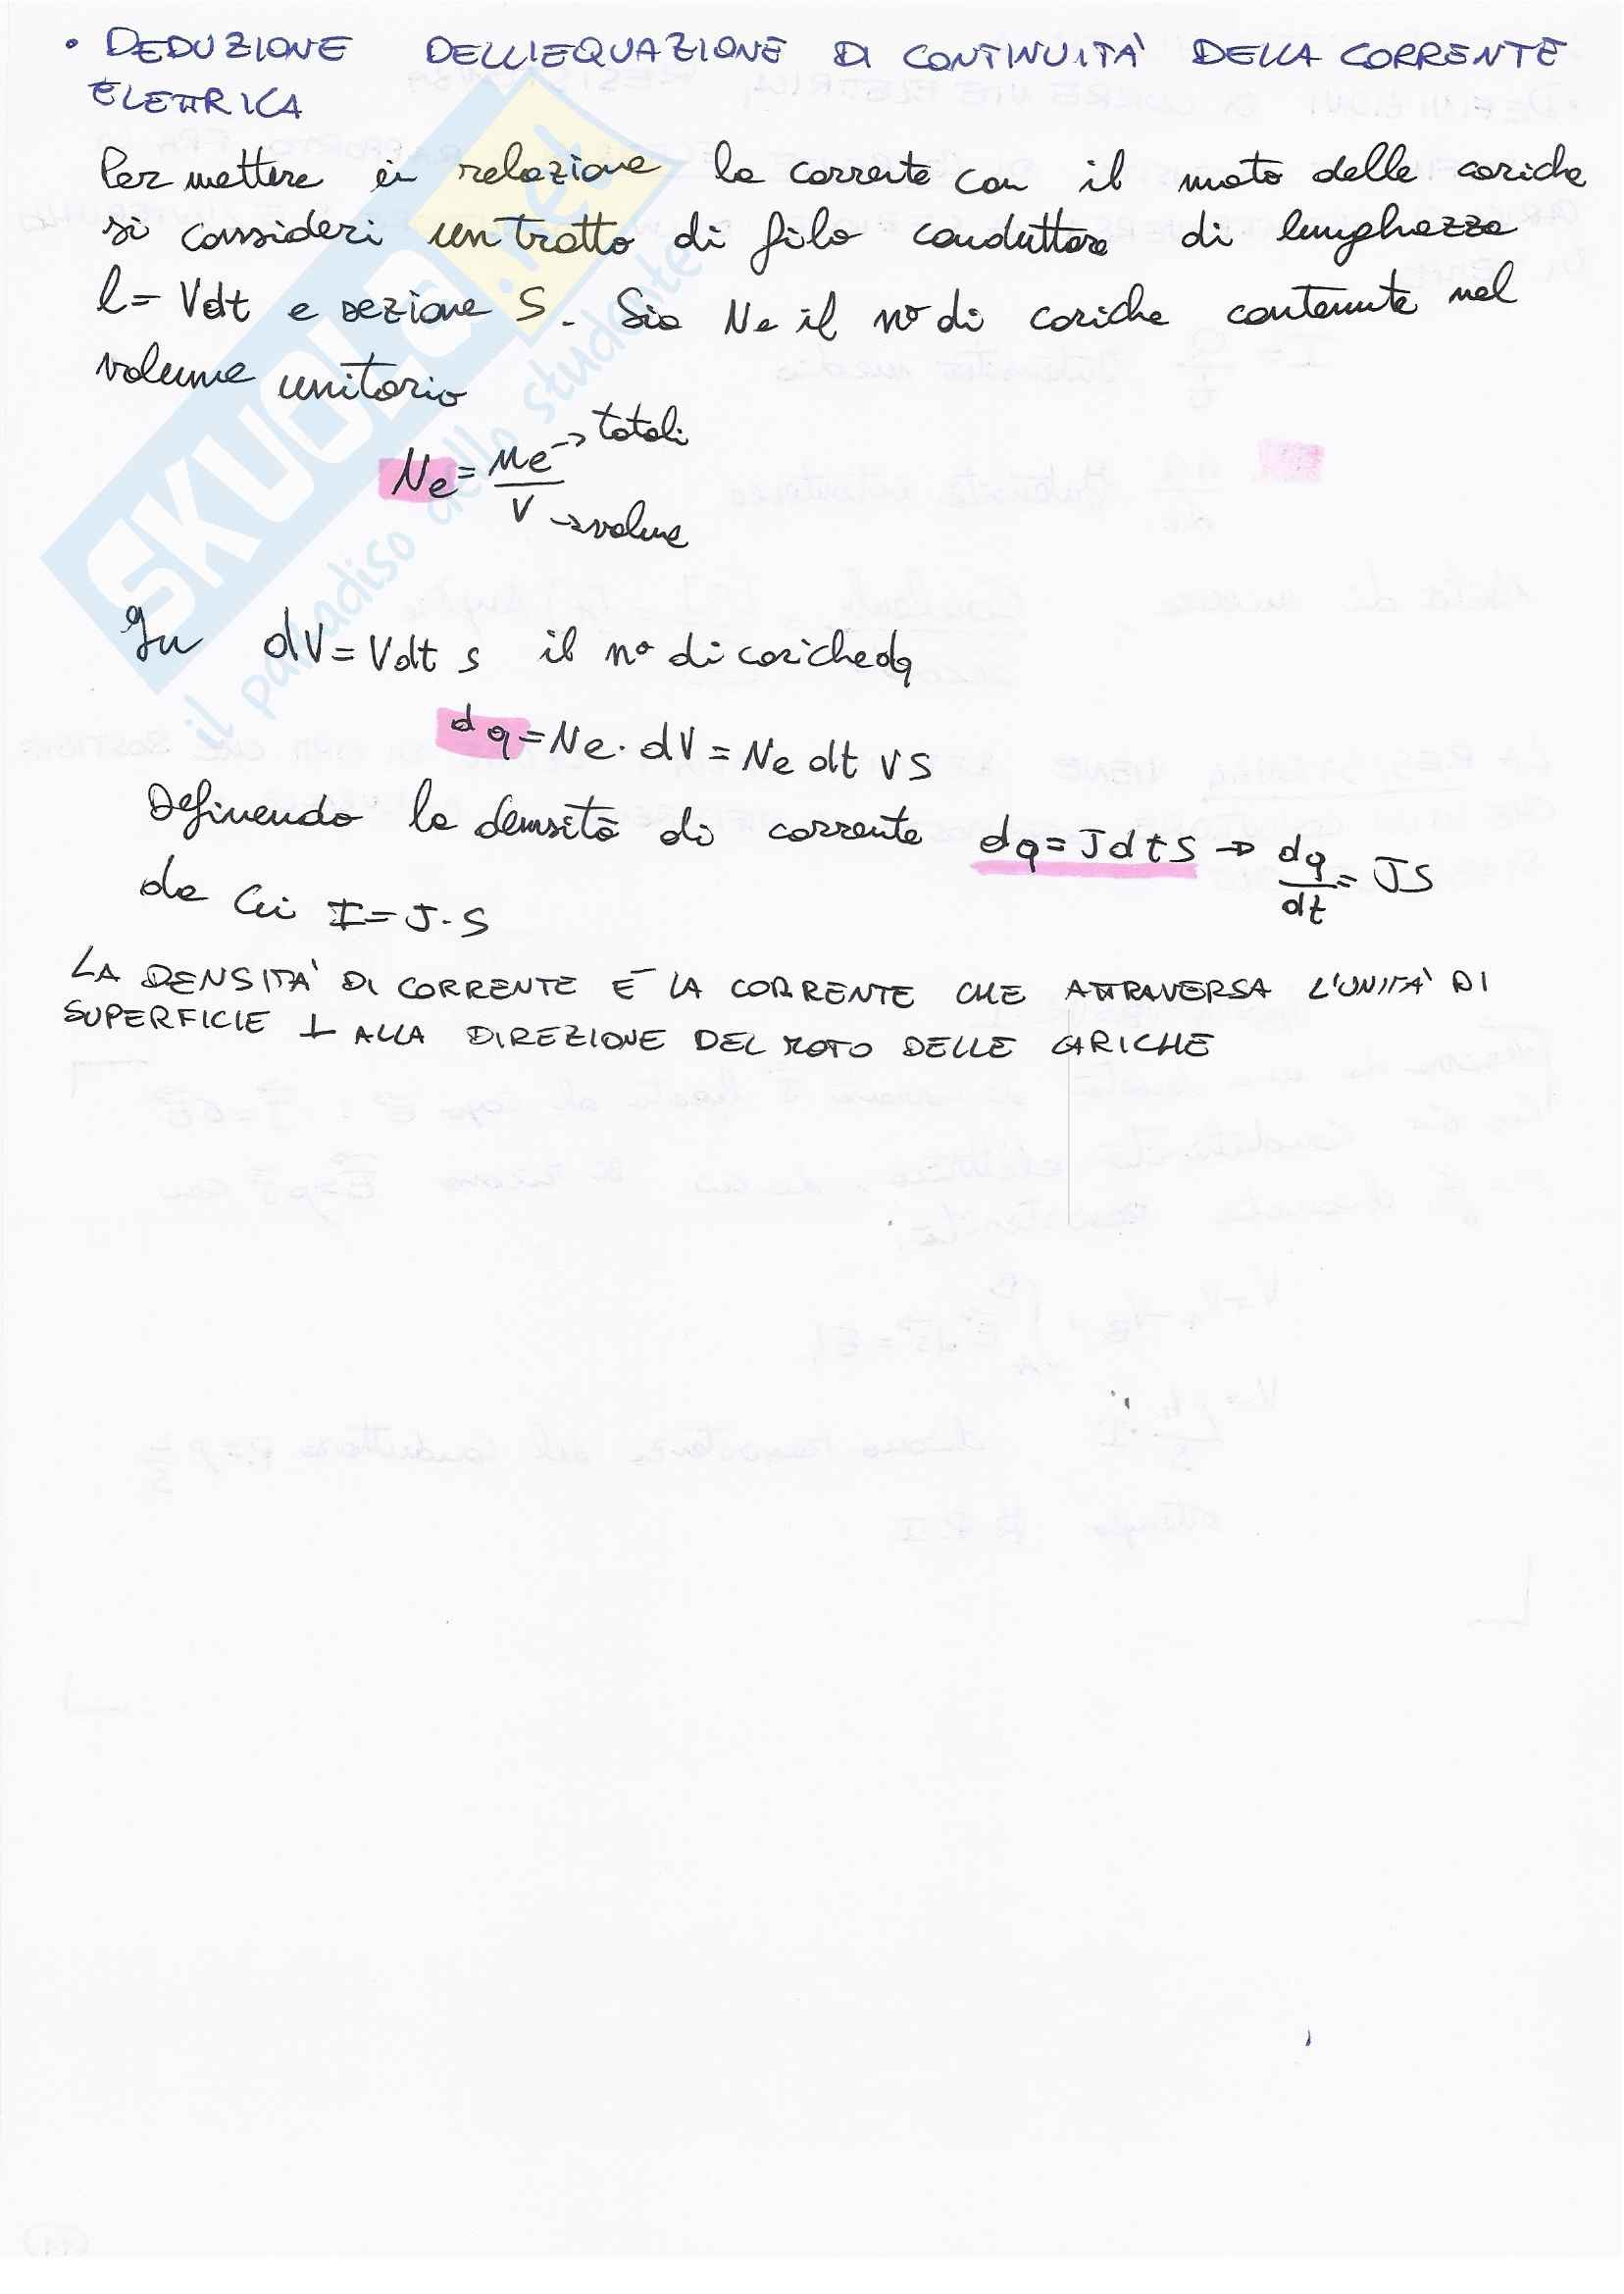 • DEDUZIONE DELL'EQUAZIONE DI CONTINUITA' DELLA CORRENTE
ELETTRICA
Per mettere in relazione la corrente con il moto delle cariche
si consideri un tratto di filo conduttore di lunghezza
l = Vdt e sezione S. Sia Ne il n° di cariche contenute nel
volume unitario
Ne = ne/V → totali
→ volume
In dV = Vdt S il n° di cariche dq
dq = Ne · dV = Ne dt VS
Definendo la densità di corrente dq = J dt S → dq/dt = JS
da cui I = J · S
LA DENSITA' DI CORRENTE È LA CORRENTE CHE ATTRAVERSA L'UNITA' DI
SUPERFICIE ⊥ ALLA DIREZIONE DEL MOTO DELLE CARICHE
SKUOLA.net
il paradiso dello studente